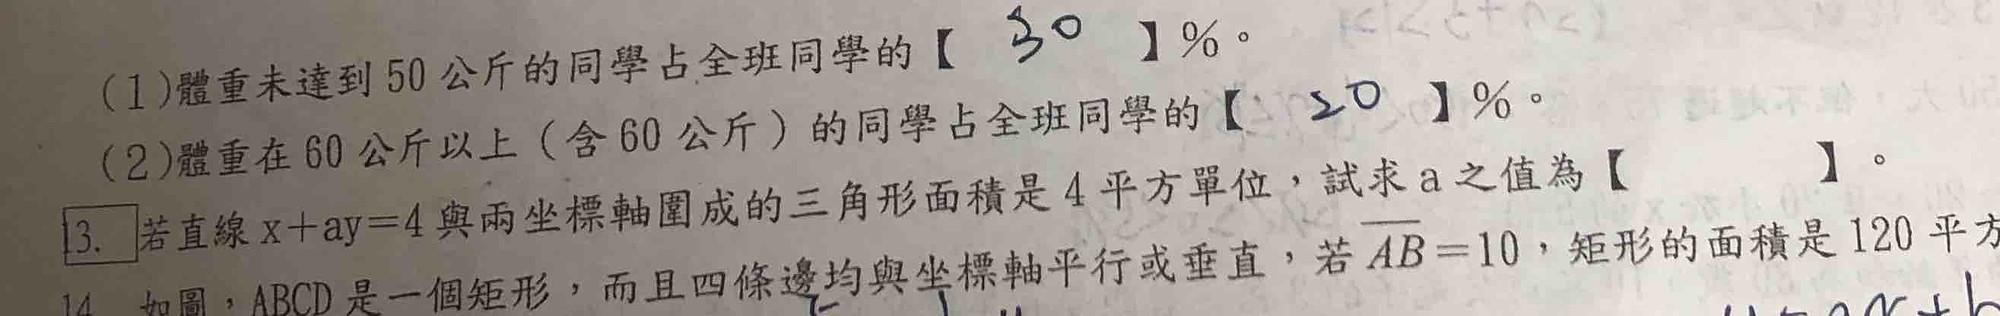 (1)體重未達到 50 公斤的同學占全班同學的【 30 】%。
(2)體重在 60 公斤以上（含 60 公斤）的同學占全班同學的【 20 】%。
13. 若直線 x＋ay＝4 與兩坐標軸圍成的三角形面積是 4 平方單位，試求 a 之值為【 】。
14. 如圖，ABCD 是一個矩形，而且四條邊均與坐標軸平行或垂直，若 AB＝10，矩形的面積是 120 平方